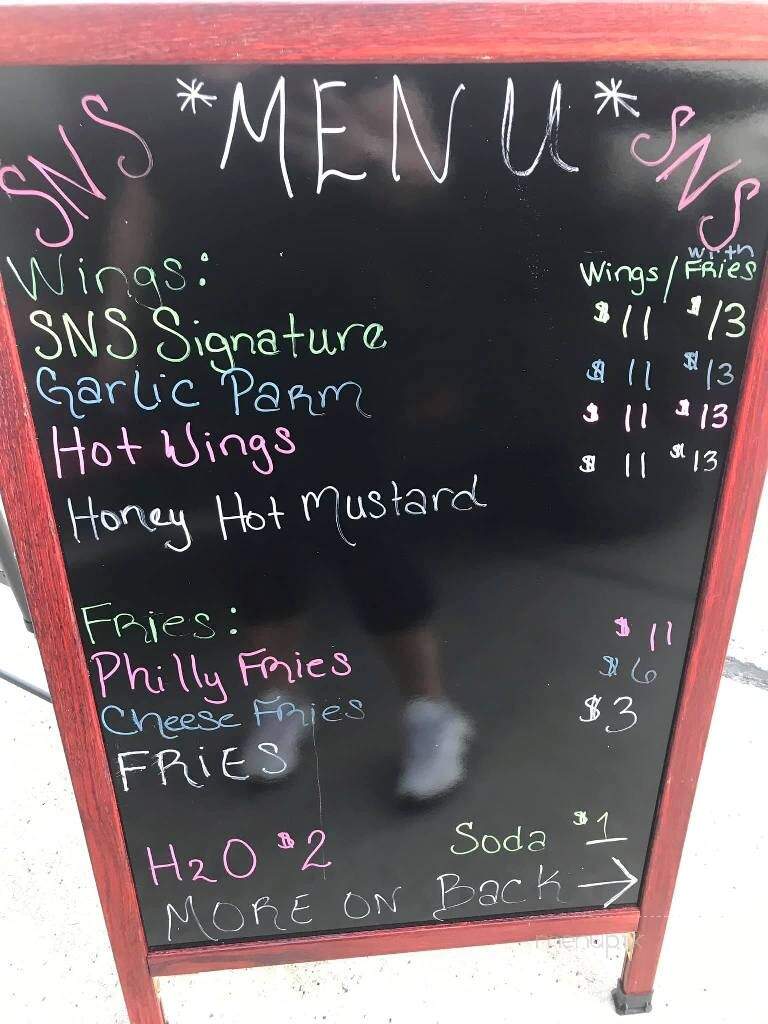 SNS *MENU* SNS
Wings: Wings/with FRies
SNS Signature $11 $13
Garlic Parm $11 $13
Hot Wings $11 $13
Honey Hot Mustard $11 $13
Fries:
Philly Fries $11
Cheese Fries $6
FRiES $3
H2O $2 Soda $1
MORE ON Back →
menupix